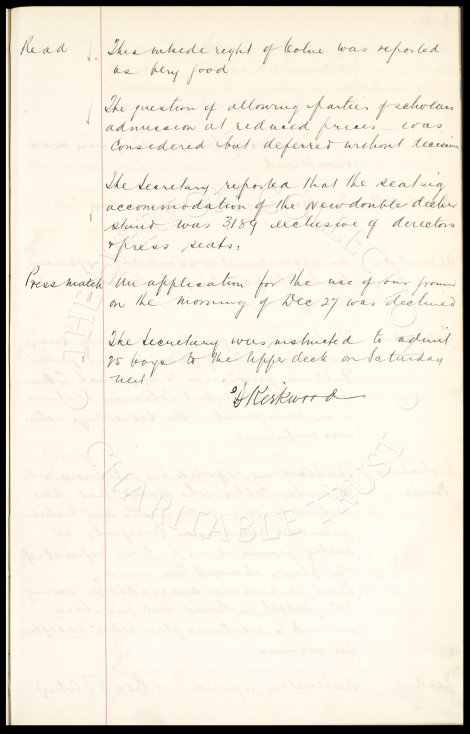 Read This outside right of Colne was reported
as very good
The question of allowing parties of scholars
admission at reduced prices was
considered but deferred without decision
The Secretary reported that the seating
accommodation of the New double decker
stand was 3189 exclusive of directors
& press seats.
Press match An application for the use of our ground
on the morning of Dec 27 was declined
The Secretary was instructed to admit
25 boys to the Upper deck on Saturday
next
Kirkwood
CHARITABLE TRUST